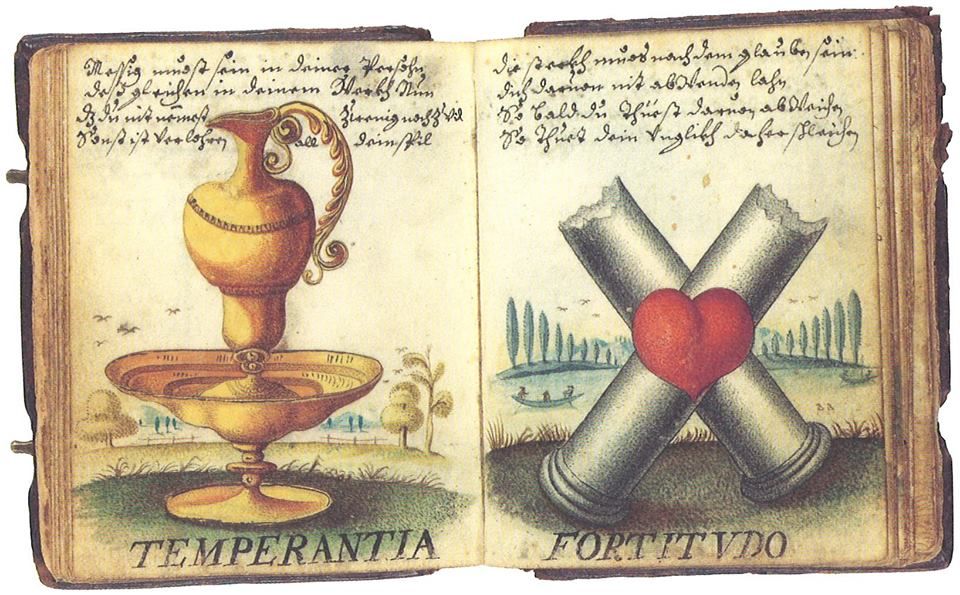 Messig must sein in deiner Persohn
desgleichen in deinem Werkh Nun
dz du nit nemest Zwenig noch Zvil
Sonst ist Verlohren all dein spil
TEMPERANTIA
die sterkh muos nach dem glauben sein
dich daruon nit abwenden lahn
So bald du Thuest daruon abweichen
So Thuet dein Unglickh daher schleichen
FORTITVDO